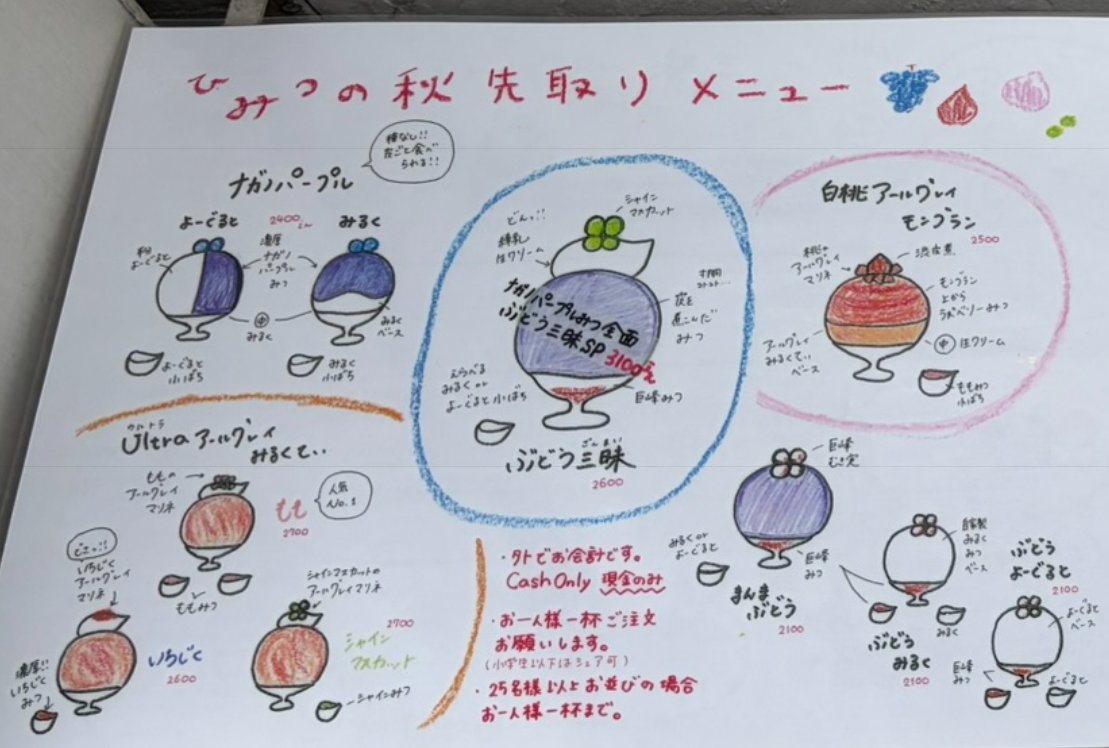 ひみつの秋先取りメニュー
種なし!!
皮ごと食べ
られる!!
ナガノパープル
よーぐると
2400
みるく
よーぐると
濃厚
ナガノ
パープル
みつ
中
みるく
みるく
ベース
よーぐると
小ばち
みるく
小ばち
シャイン
マスカット
どんっ!!
練乳
生クリーム
ナガノパープルみつ全面
ぶどう三昧SP
3100
みつ
えらべる
みるくor
よーぐると小ばち
巨峰みつ
ざんまい
ぶどう三昧
2600
白桃アールグレイ
モンブラン
2500
桃の
アールグレイ
マリネ
渋皮煮
モンブラン
上から
ラズベリーみつ
アールグレイ
みるくてぃ
ベース
中 生クリーム
ももみつ
小ばち
ウルトラ
Ultraアールグレイ
みるくてぃ
ももの
アールグレイ
マリネ
もも
2700
人気
No.1
ももみつ
どさっ!!
いちじく
アールグレイ
マリネ
いちじく
2600
濃厚!!
いちじく
みつ
シャインマスカットの
アールグレイマリネ
2700
シャイン
マスカット
シャインみつ
・外でお会計です。
Cash Only 現金のみ
・お一人様一杯ご注文
お願いします。
(小学生以下はシェア可)
・25名様以上お並びの場合
お一人様一杯まで。
巨峰
みるくor
よーぐると
巨峰
みつ
まんま
ぶどう
2100
自家製
みるく
みつ
ベース
みるく
ぶどう
みるく
2100
ぶどう
よーぐると
2100
よーぐると
ベース
巨峰
みつ
よーぐると